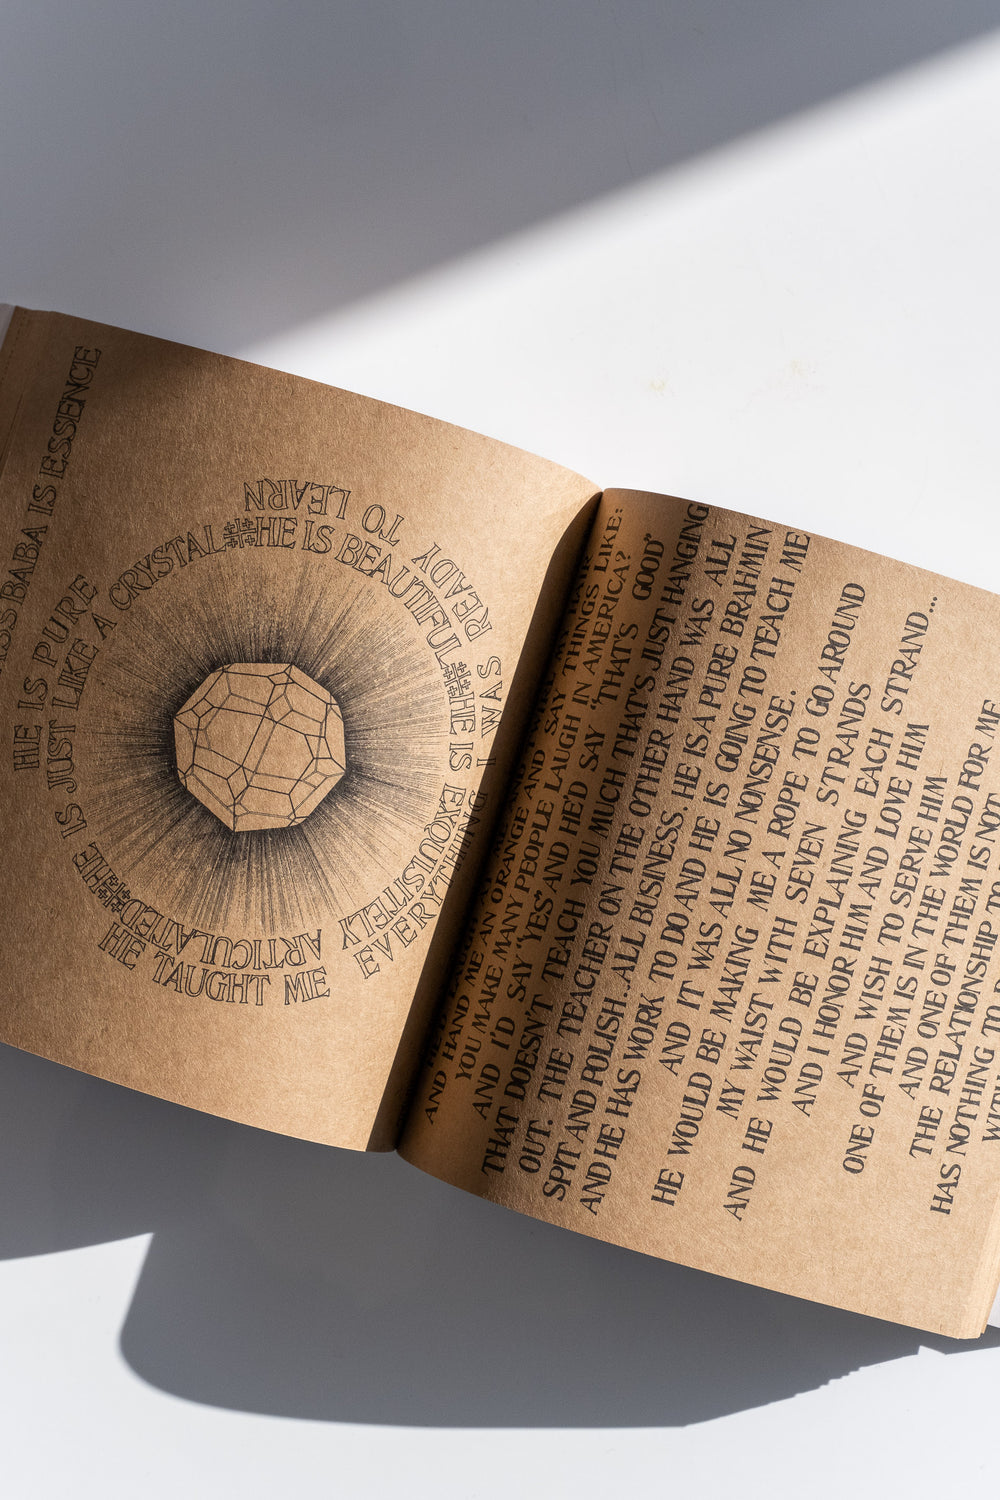 ASS BABA IS ESSENCE
HE IS PURE
HE IS JUST LIKE A CRYSTAL HE IS BEAUTIFUL HE IS EXQUISITELY ARTICULATED
HE TAUGHT ME EVERYTHING I WAS READY TO LEARN
AND HAND ME AN ORANGE AND SAY THINGS LIKE:
YOU MAKE MANY PEOPLE LAUGH IN AMERICA?
AND I'D SAY "YES" AND HE'D SAY "THAT'S GOOD"
THAT DOESN'T TEACH YOU MUCH THAT'S JUST HANGING
OUT. THE TEACHER ON THE OTHER HAND WAS ALL
SPIT AND POLISH...ALL BUSINESS. HE IS A PURE BRAHMIN
AND HE HAS WORK TO DO AND HE IS GOING TO TEACH ME
AND IT WAS ALL NO NONSENSE.
HE WOULD BE MAKING ME A ROPE TO GO AROUND
MY WAIST WITH SEVEN STRANDS
AND HE WOULD BE EXPLAINING EACH STRAND...
AND I HONOR HIM AND LOVE HIM
AND WISH TO SERVE HIM
ONE OF THEM IS IN THE WORLD FOR ME
AND ONE OF THEM IS NOT
THE RELATIONSHIP TO
HAS NOTHING TO
WITH